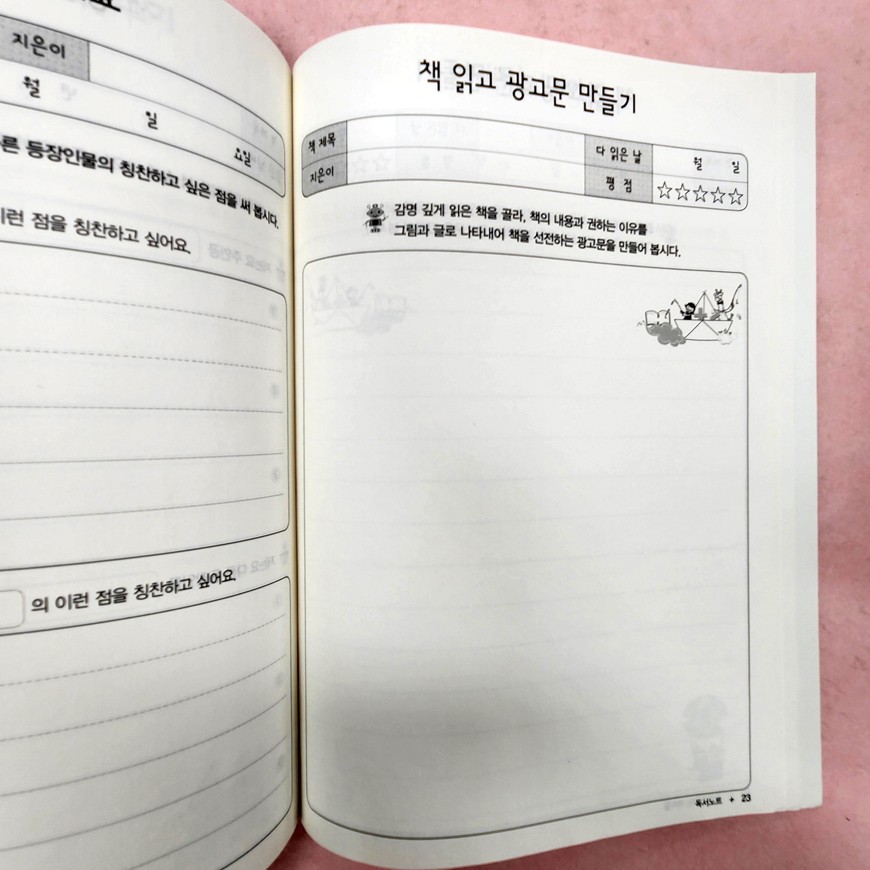 지은이
월
일
요일
른 등장인물의 칭찬하고 싶은 점을 써 봅시다.
이런 점을 칭찬하고 싶어요.
의 이런 점을 칭찬하고 싶어요.
책 읽고 광고문 만들기
책 제목
다 읽은 날
월 일
지은이
평 점
☆☆☆☆☆
감명 깊게 읽은 책을 골라, 책의 내용과 권하는 이유를
그림과 글로 나타내어 책을 선전하는 광고문을 만들어 봅시다.
독서노트 + 23